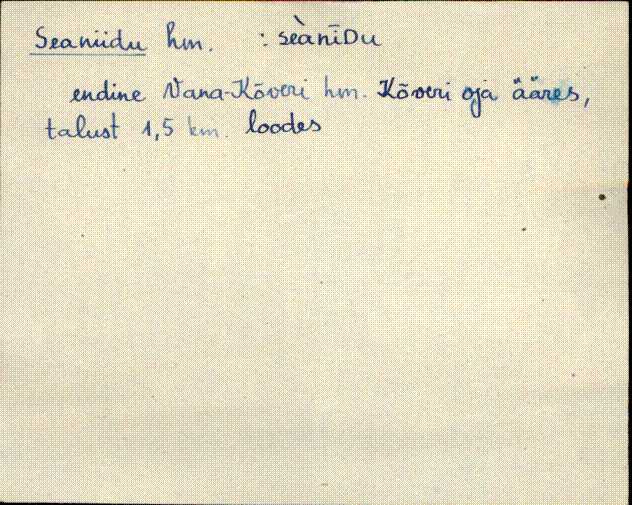 Seaniidu hm. : sèanīDu
endine Vana-Kõveri hm. Kõveri oja ääres,
talust 1,5 km. loodes